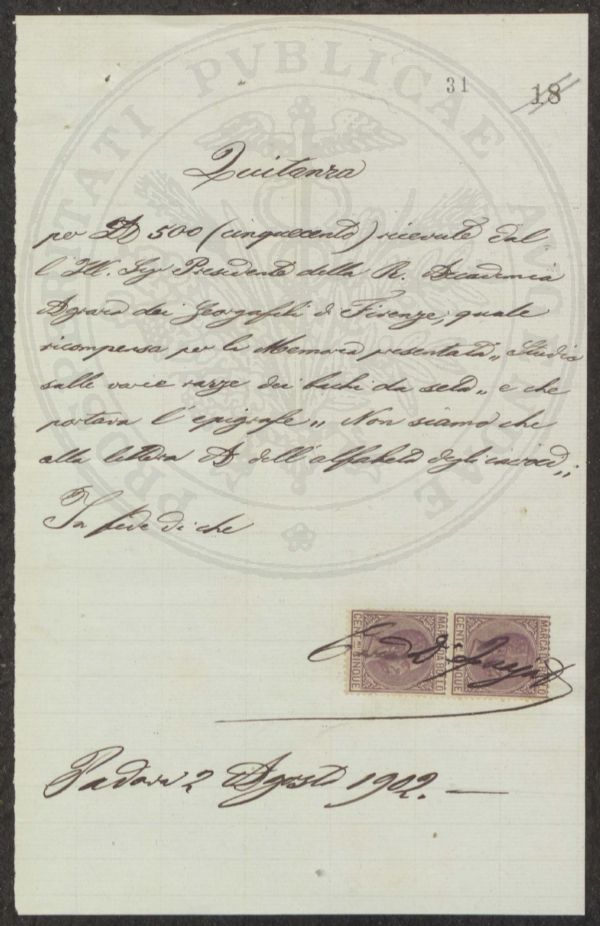 31
18
Quitanza
per L 500 (cinquecento) ricevute dal
l'Ill. Sigr Presidente della R. Accademia
Agraria dei Georgofili di Firenze, quale
ricompensa per la Memoria presentata „ Studio
sulle varie razze dei bachi da seta „ e che
portava l'epigrafe „ Non siamo che
alla lettera A dell'alfabeto degli
In fede di che
MARCA DA BOLLO
CENT. MI CINQUE
MARCA DA BOLLO
CENT. MI CINQUE
Padova 2 Agosto 1902. —
PROSPERITATI PVBLICAE AVGENDAE